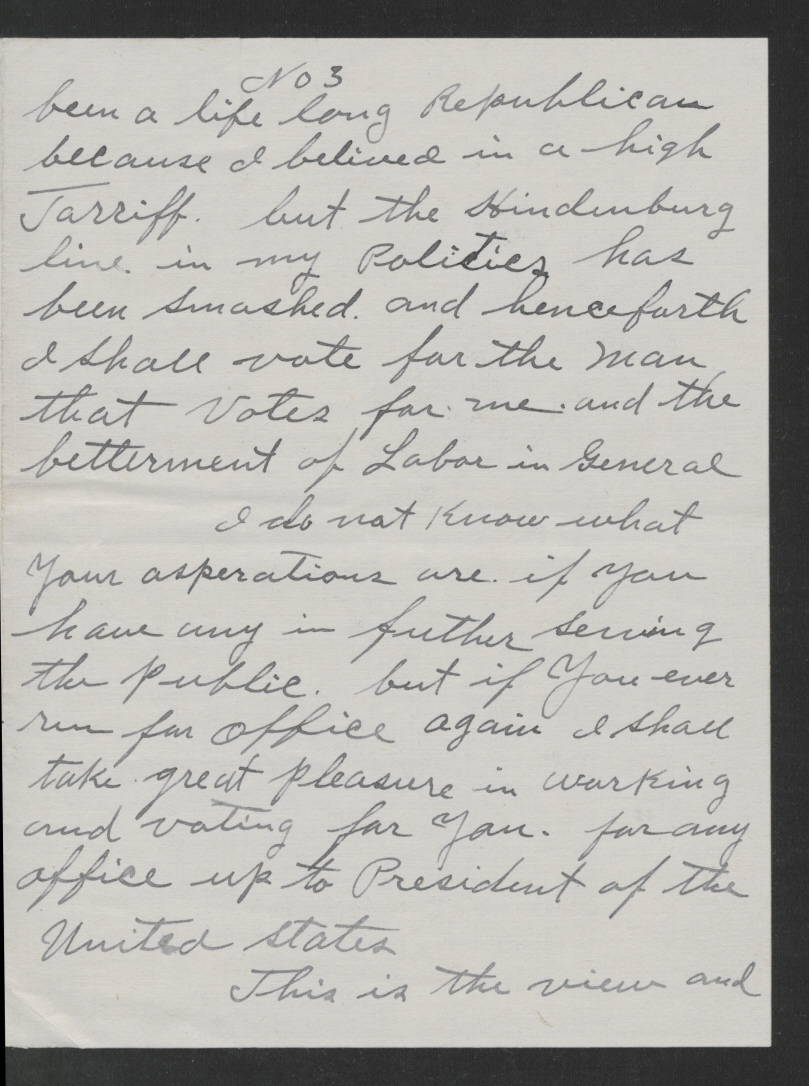 No 3
been a life long Republican
because I belived in a high
Tarriff. but the Hindenburg
line. in my Politics has
been smashed. and henceforth
I shall vote for the man
that Votes for me. and the
betterment of Labor in General
I do not Know what
Your asperations are. if you
have any in futher serving
the public. but if You ever
run for office again I shall
take great pleasure in working
and voting for You. for any
office up to President of the
United states
This is the view and